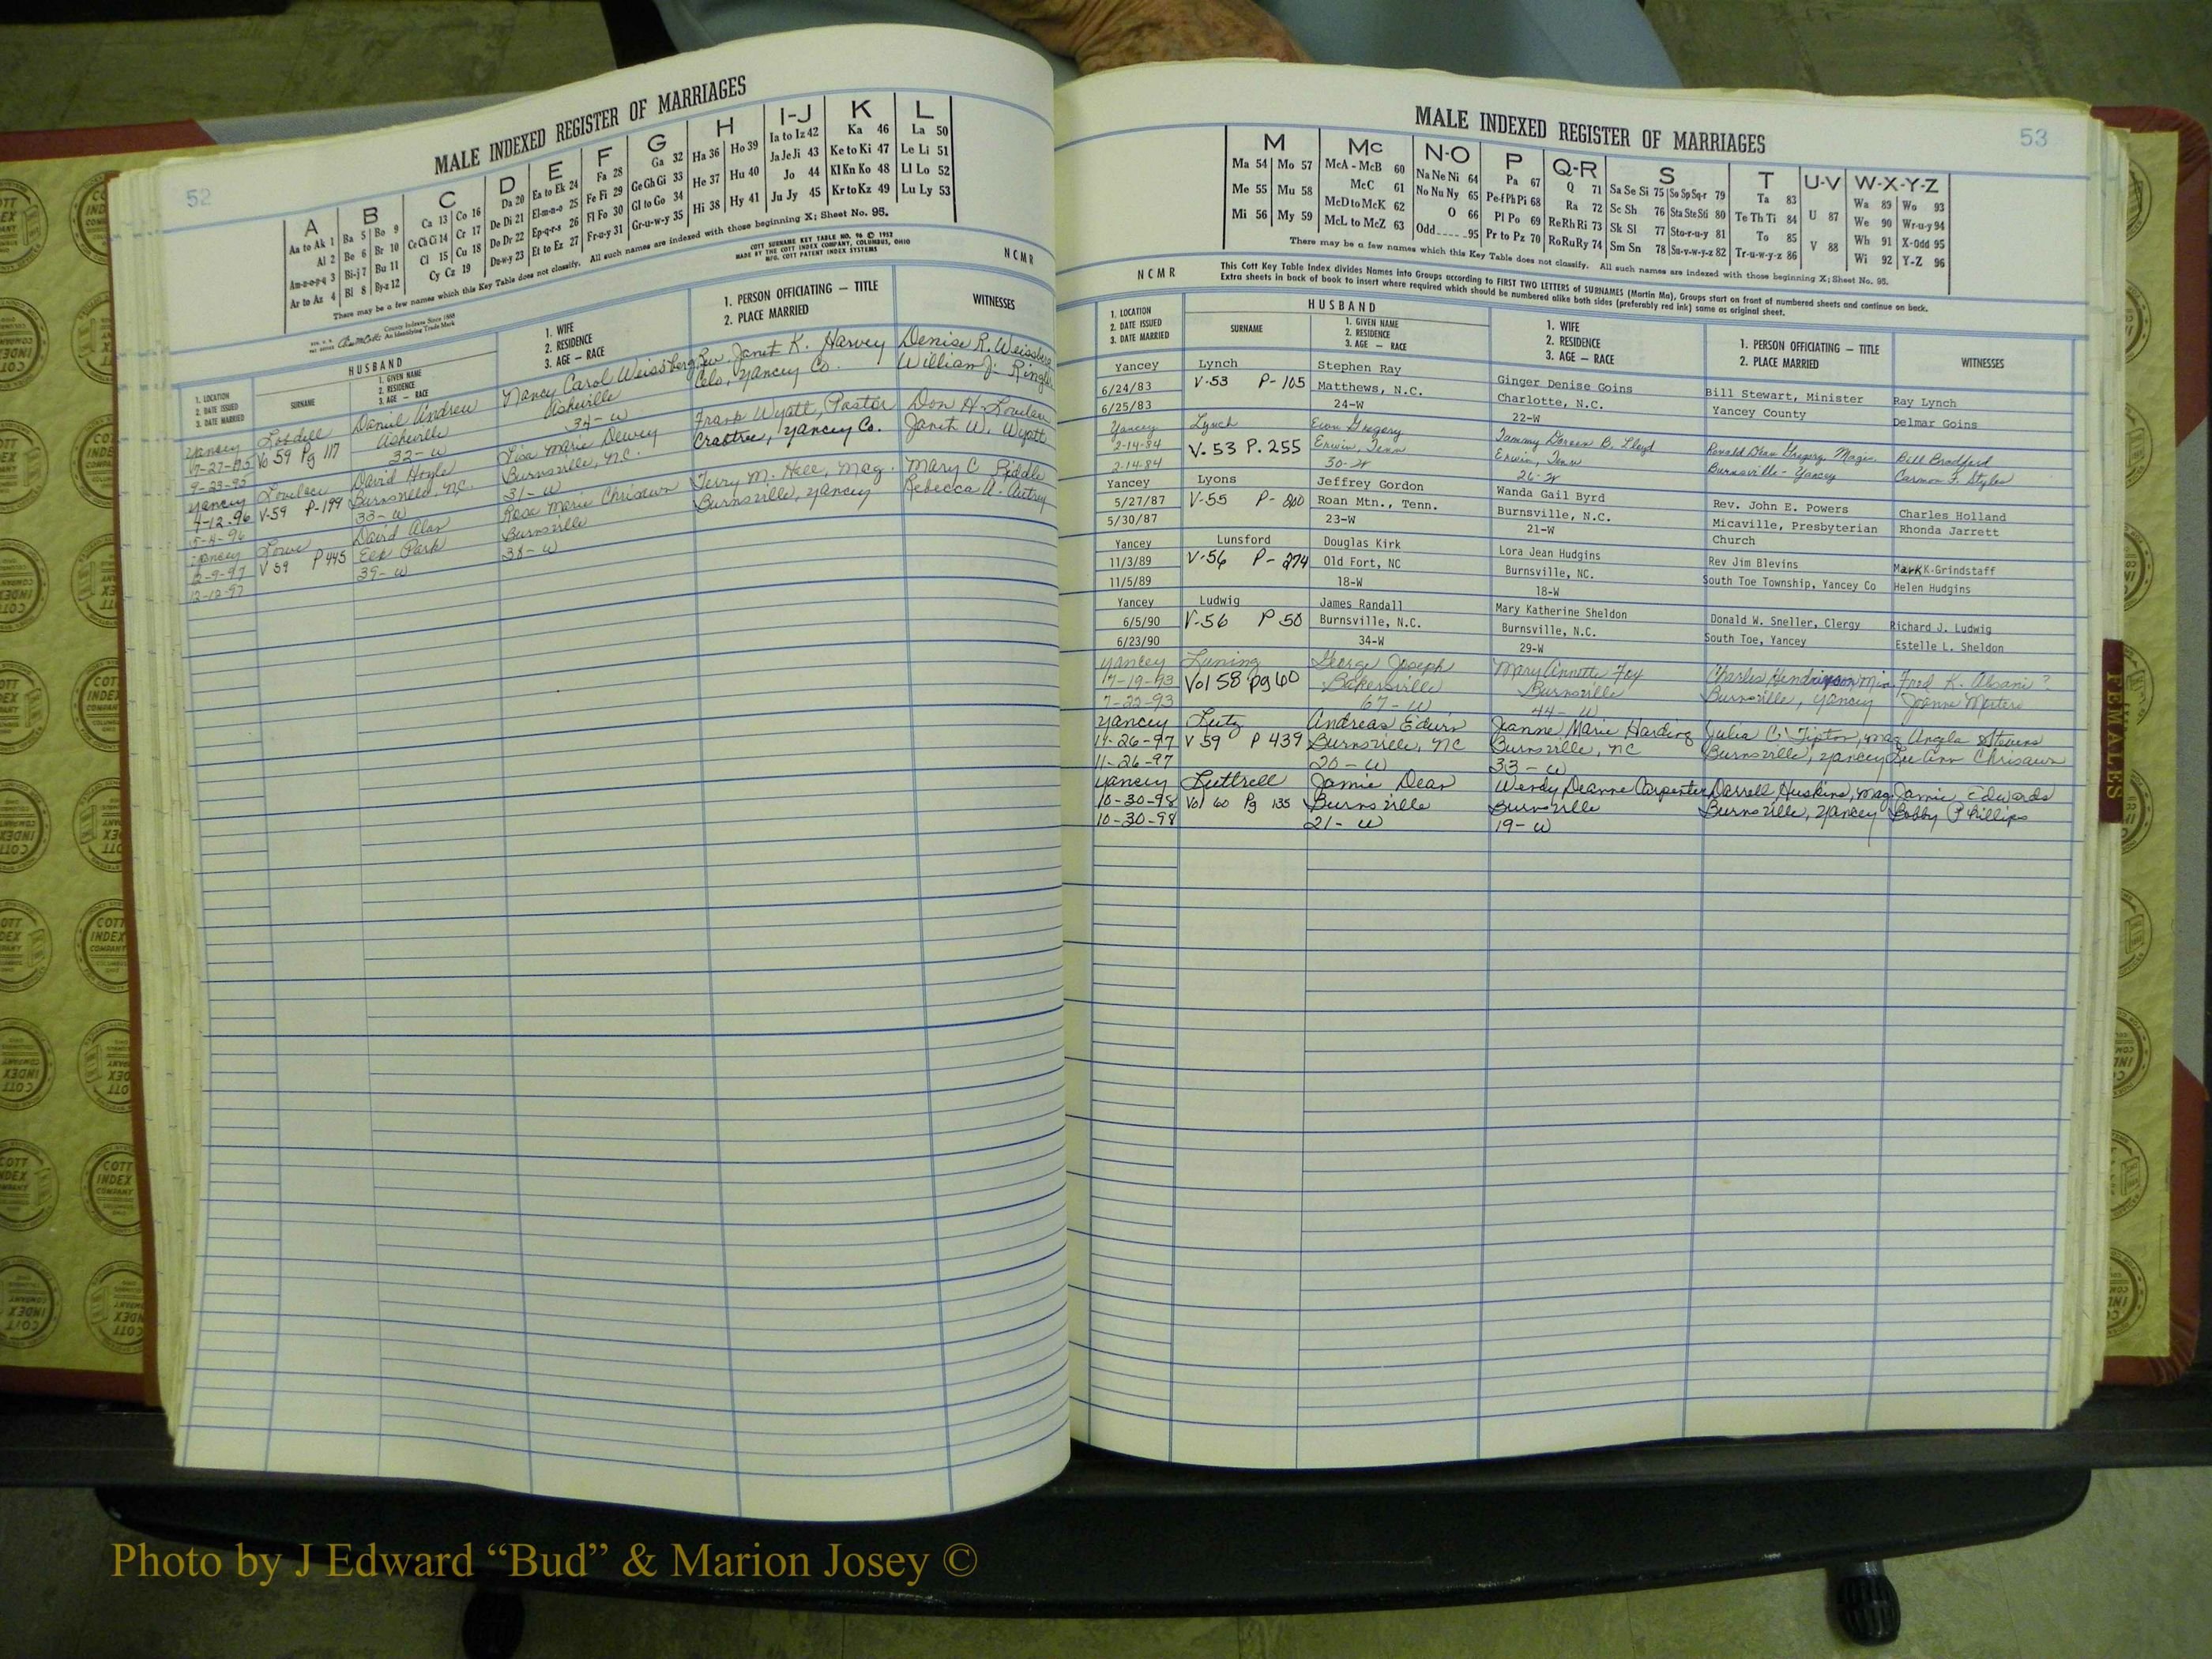 52
MALE INDEXED REGISTER OF MARRIAGES
A B C D E F G H I-J K L
Aa to Ak 1 Ba 5 Bo 9 Ca 13 Co 16 Da 20 Ea to Ek 24 Fa 28 Ga 32 Ha 36 Ho 39 Ia to Iz 42 Ka 46 La 50
Al 2 Be 6 Br 10 Ce Ch Ci 14 Cr 17 De Di 21 El-m-n-o 25 Fe Fi 29 Ge Gh Gi 33 He 37 Hu 40 Ja Je Ji 43 Ke to Ki 47 Le Li 51
Am-n-o-p-q 3 Bi-j 7 Bu 11 Cl 15 Cu 18 Do Dr 22 Ep-q-r-s 26 Fl Fo 30 Gl to Go 34 Hi 38 Hy 41 Jo 44 Kl Kn Ko 48 Ll Lo 52
Ar to Az 4 Bl 8 By-z 12 Cy Cz 19 Du-w-y 23 Et to Ez 27 Fr-u-y 31 Gr-u-w-y 35 Ju Jy 45 Kr to Kz 49 Lu Ly 53
There may be a few names which this Key Table does not classify. All such names are indexed with those beginning X; Sheet No. 95.
COTT SURNAME KEY TABLE NO. 96 © 1952
MADE BY THE COTT INDEX COMPANY, COLUMBUS, OHIO
MFG. COTT PATENT INDEX SYSTEMS
N C M R
County Indexes Since 1888
An Identifying Trade Mark
1. LOCATION
2. DATE ISSUED
3. DATE MARRIED
HUSBAND
SURNAME
1. GIVEN NAME
2. RESIDENCE
3. AGE — RACE
1. WIFE
2. RESIDENCE
3. AGE — RACE
1. PERSON OFFICIATING — TITLE
2. PLACE MARRIED
WITNESSES
Yancey Lobdell Daniel Andrew Nancy Carol Weissberg Rev. Janet K. Harvey Denise R. Weissberg
Vo 59 Pg 117 Asheville Asheville Celo, Yancey Co. William J. Ringle
9-23-95 32-W 34-W
Yancey Lovelace David Hoyle Lisa Marie Dewey Frank Wyatt, Pastor Don H. Lovelace
4-12-96 V-59 P-199 Burnsville, NC. Burnsville, N.C. Crabtree, Yancey Co. Janet W. Wyatt
5-4-96 33-W 31-W
Yancey Lowe David Alan Rose Marie Chrisawn Terry M. Hall, Mag. Mary C Riddle
12-9-97 V 59 P 445 Elk Park Burnsville Burnsville, Yancey Rebecca A. Autrey
12-12-97 39-W 38-W
53
MALE INDEXED REGISTER OF MARRIAGES
M Mc N-O P Q-R S T U-V W-X-Y-Z
Ma 54 Mo 57 McA - McB 60 Na Ne Ni 64 Pa 67 Q 71 Sa Se Si 75 So Sp Sq-r 79 Ta 83 U 87 Wa 89 Wo 93
Me 55 Mu 58 McC 61 No Nu Ny 65 Pe-f Ph Pi 68 Ra 72 Sc Sh 76 Sta Ste Sti 80 Te Th Ti 84 V 88 We 90 Wr-u-y 94
Mi 56 My 59 McD to McK 62 O 66 Pl Po 69 Re Rh Ri 73 Sk Sl 77 Sto-r-u-y 81 To 85 Wh 91 X-Odd 95
McL to McZ 63 Odd 95 Pr to Pz 70 Ro Ru Ry 74 Sm Sn 78 Su-v-w-y-z 82 Tr-u-w-y-z 86 Wi 92 Y-Z 96
There may be a few names which this Key Table does not classify. All such names are indexed with those beginning X; Sheet No. 95.
N C M R
This Cott Key Table Index divides Names into Groups according to FIRST TWO LETTERS of SURNAMES (Martin Ma), Groups start on front of numbered sheets and continue on back.
Extra sheets in back of book to insert where required which should be numbered alike both sides (preferably red ink) same as original sheet.
1. LOCATION
2. DATE ISSUED
3. DATE MARRIED
HUSBAND
SURNAME
1. GIVEN NAME
2. RESIDENCE
3. AGE — RACE
1. WIFE
2. RESIDENCE
3. AGE — RACE
1. PERSON OFFICIATING — TITLE
2. PLACE MARRIED
WITNESSES
Yancey Lynch Stephen Ray Ginger Denise Goins Bill Stewart, Minister Ray Lynch
6/24/83 V-53 P-105 Matthews, N.C. Charlotte, N.C. Yancey County Delmar Goins
6/25/83 24-W 22-W
Yancey Lynch Evan Gregory Tammy Doreen B. Lloyd Ronald Dean Gregory Magis. Bill Bradford
2-14-84 V-53 P.255 Erwin, Tenn Erwin, Tenn Burnsville - Yancey Carmon F. Styles
2-14-84 30-W 26-W
Yancey Lyons Jeffrey Gordon Wanda Gail Byrd Rev. John E. Powers Charles Holland
5/27/87 V-55 P- Roan Mtn., Tenn. Burnsville, N.C. Micaville, Presbyterian Rhonda Jarrett
5/30/87 23-W 21-W Church
Yancey Lunsford Douglas Kirk Lora Jean Hudgins Rev Jim Blevins Mark K. Grindstaff
11/3/89 V-56 P-274 Old Fort, NC Burnsville, NC. South Toe Township, Yancey Co Helen Hudgins
11/5/89 18-W 18-W
Yancey Ludwig James Randall Mary Katherine Sheldon Donald W. Sneller, Clergy Richard J. Ludwig
6/5/90 V-56 P 50 Burnsville, N.C. Burnsville, N.C. South Toe, Yancey Estelle L. Sheldon
6/23/90 34-W 29-W
Yancey Luning George Joseph Mary Annette Fox Charles Hendrickson Min Fred K. Alsani ?
7-19-93 Vol 58 pg 60 Bakersville Burnsville Burnsville, Yancey Joanne Masters
7-22-93 67-W 44-W
Yancey Lutz Andreas Edwin Jeanne Marie Harding Julia C. Tipton, Mag Angela Stevens
11-26-97 V 59 P 439 Burnsville, NC Burnsville, NC Burnsville, Yancey Lee Ann Chrisawn
11-26-97 20-W 33-W
Yancey Luttrell Jamie Dean Wendy Deanne Carpenter Darrell Huskins, Mag. Jamie Edwards
10-30-98 Vol 60 Pg 135 Burnsville Burnsville Burnsville, Yancey Bobby Phillips
10-30-98 21-W 19-W
FEMALES
COTT INDEX COMPANY
Photo by J Edward “Bud” & Marion Josey ©